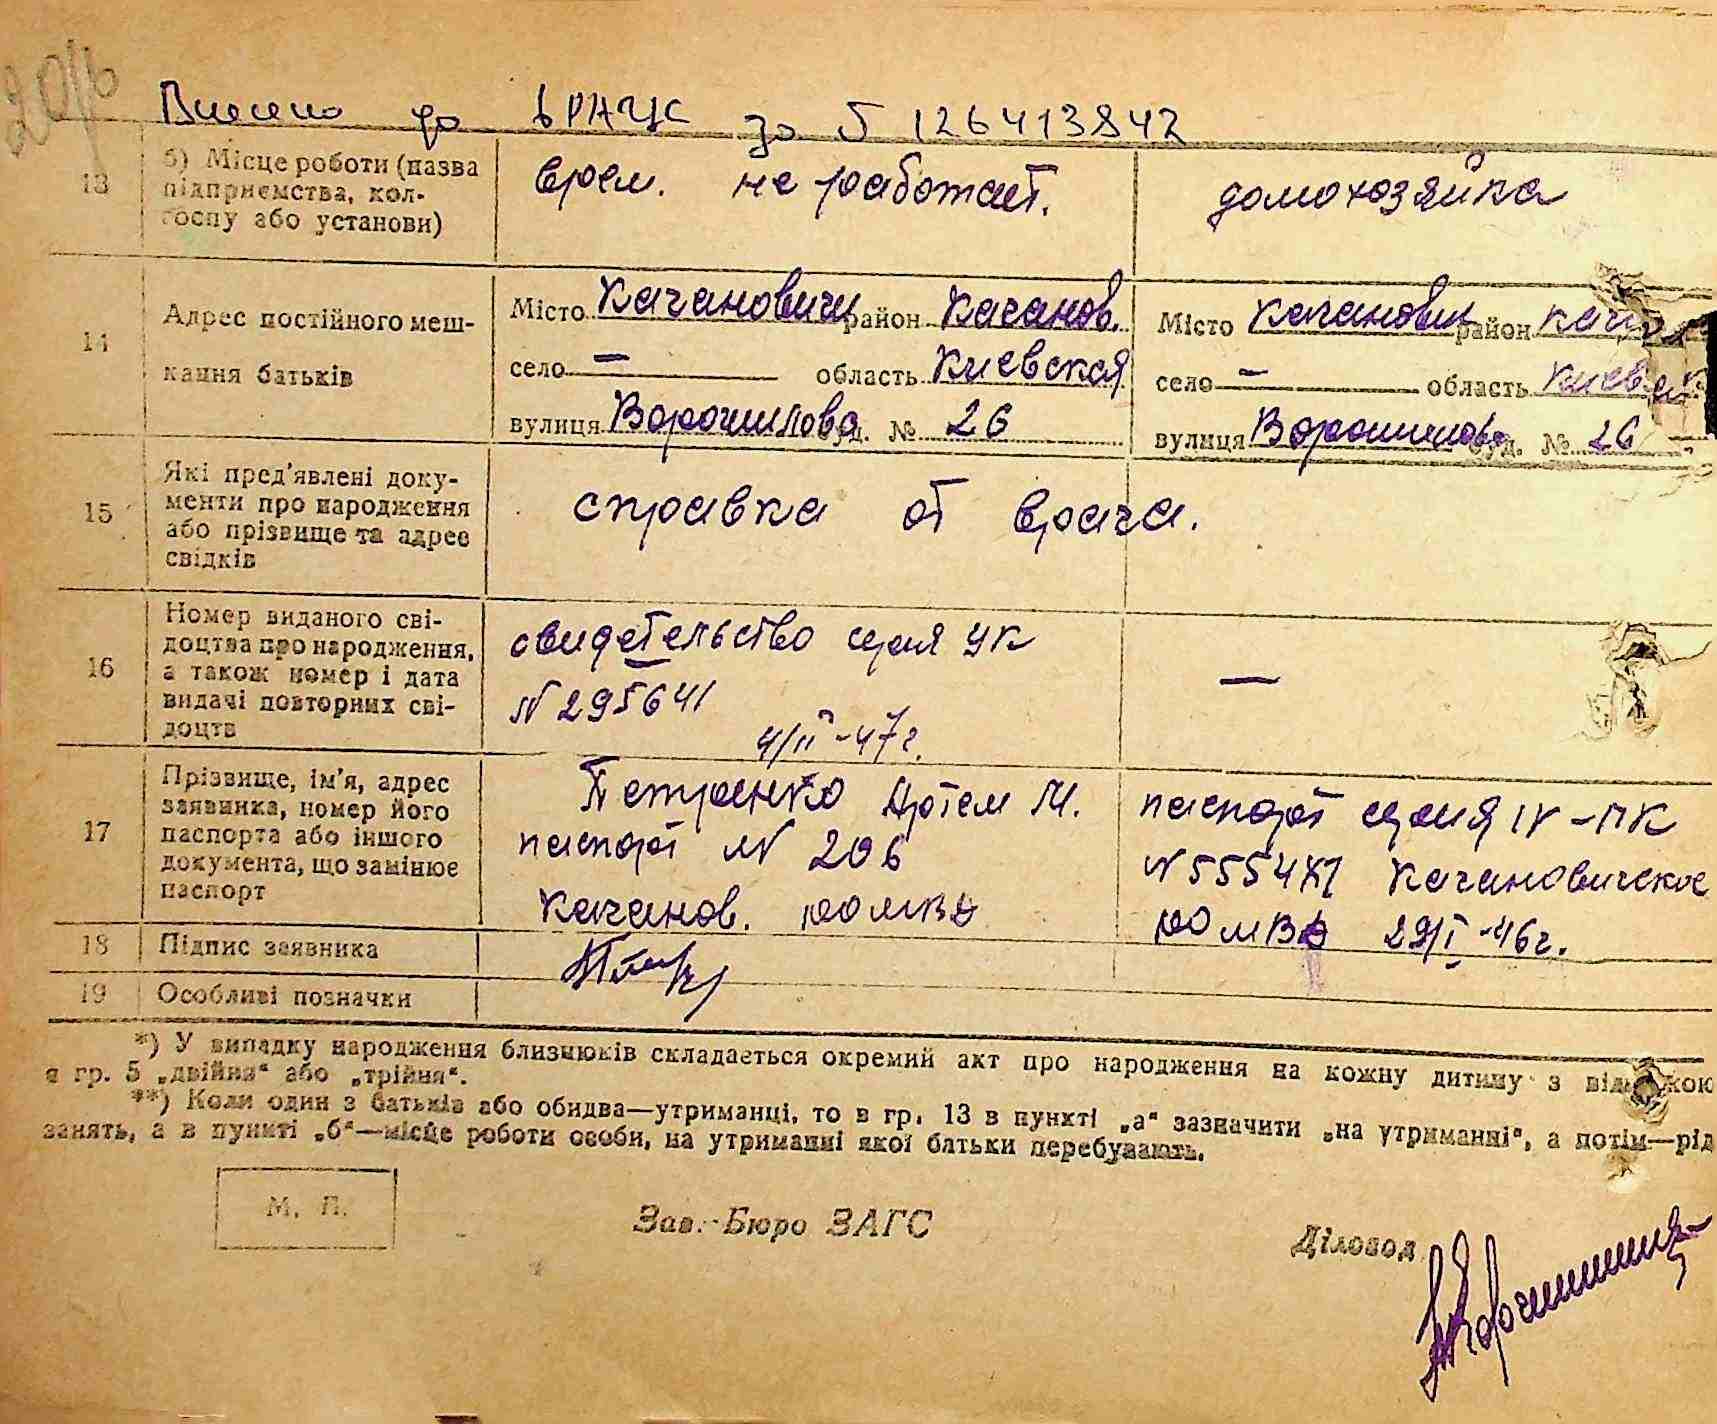 Внесено до ДРАЦС за № 126413842
13 б) Місце роботи (назва підприємства, колгоспу або установи) врем. не работает. домохозяйка
14 Адрес постійного мешкання батьків
Місто Кагановичи район Каганов. Місто Каганович район
село — область Киевская село — область Киев
вулиця Ворошилова буд. № 26 вулиця Ворошилова буд. № 26
15 Які пред'явлені документи про народження або прізвище та адрес свідків справка от врача.
16 Номер виданого свідоцтва про народження, а також номер і дата видачі повторних свідоцтв
свидетельство серия УК —
N 295641
4/II-47г.
17 Прізвище, ім'я, адрес заявника, номер його паспорта або іншого документа, що замінює паспорт
Петренко Артем М. паспорт серия IV-ПК
паспорт N 206 Кагановичское
Каганов. РОМВД РОМВД 29/I-46г.
18 Підпис заявника
19 Особливі позначки
*) У випадку народження близнюків складається окремий акт про народження на кожну дитину з
в гр. 5 „двійня“ або „трійня“.
**) Коли один з батьків або обидва—утриманці, то в гр. 13 в пункті „а“ зазначити „на утриманні“, а потім—рід
занять, а в пункті „б“—місце роботи особи, на утриманні якої батьки перебувають.
М. П.
Зав. Бюро ЗАГС
Діловод